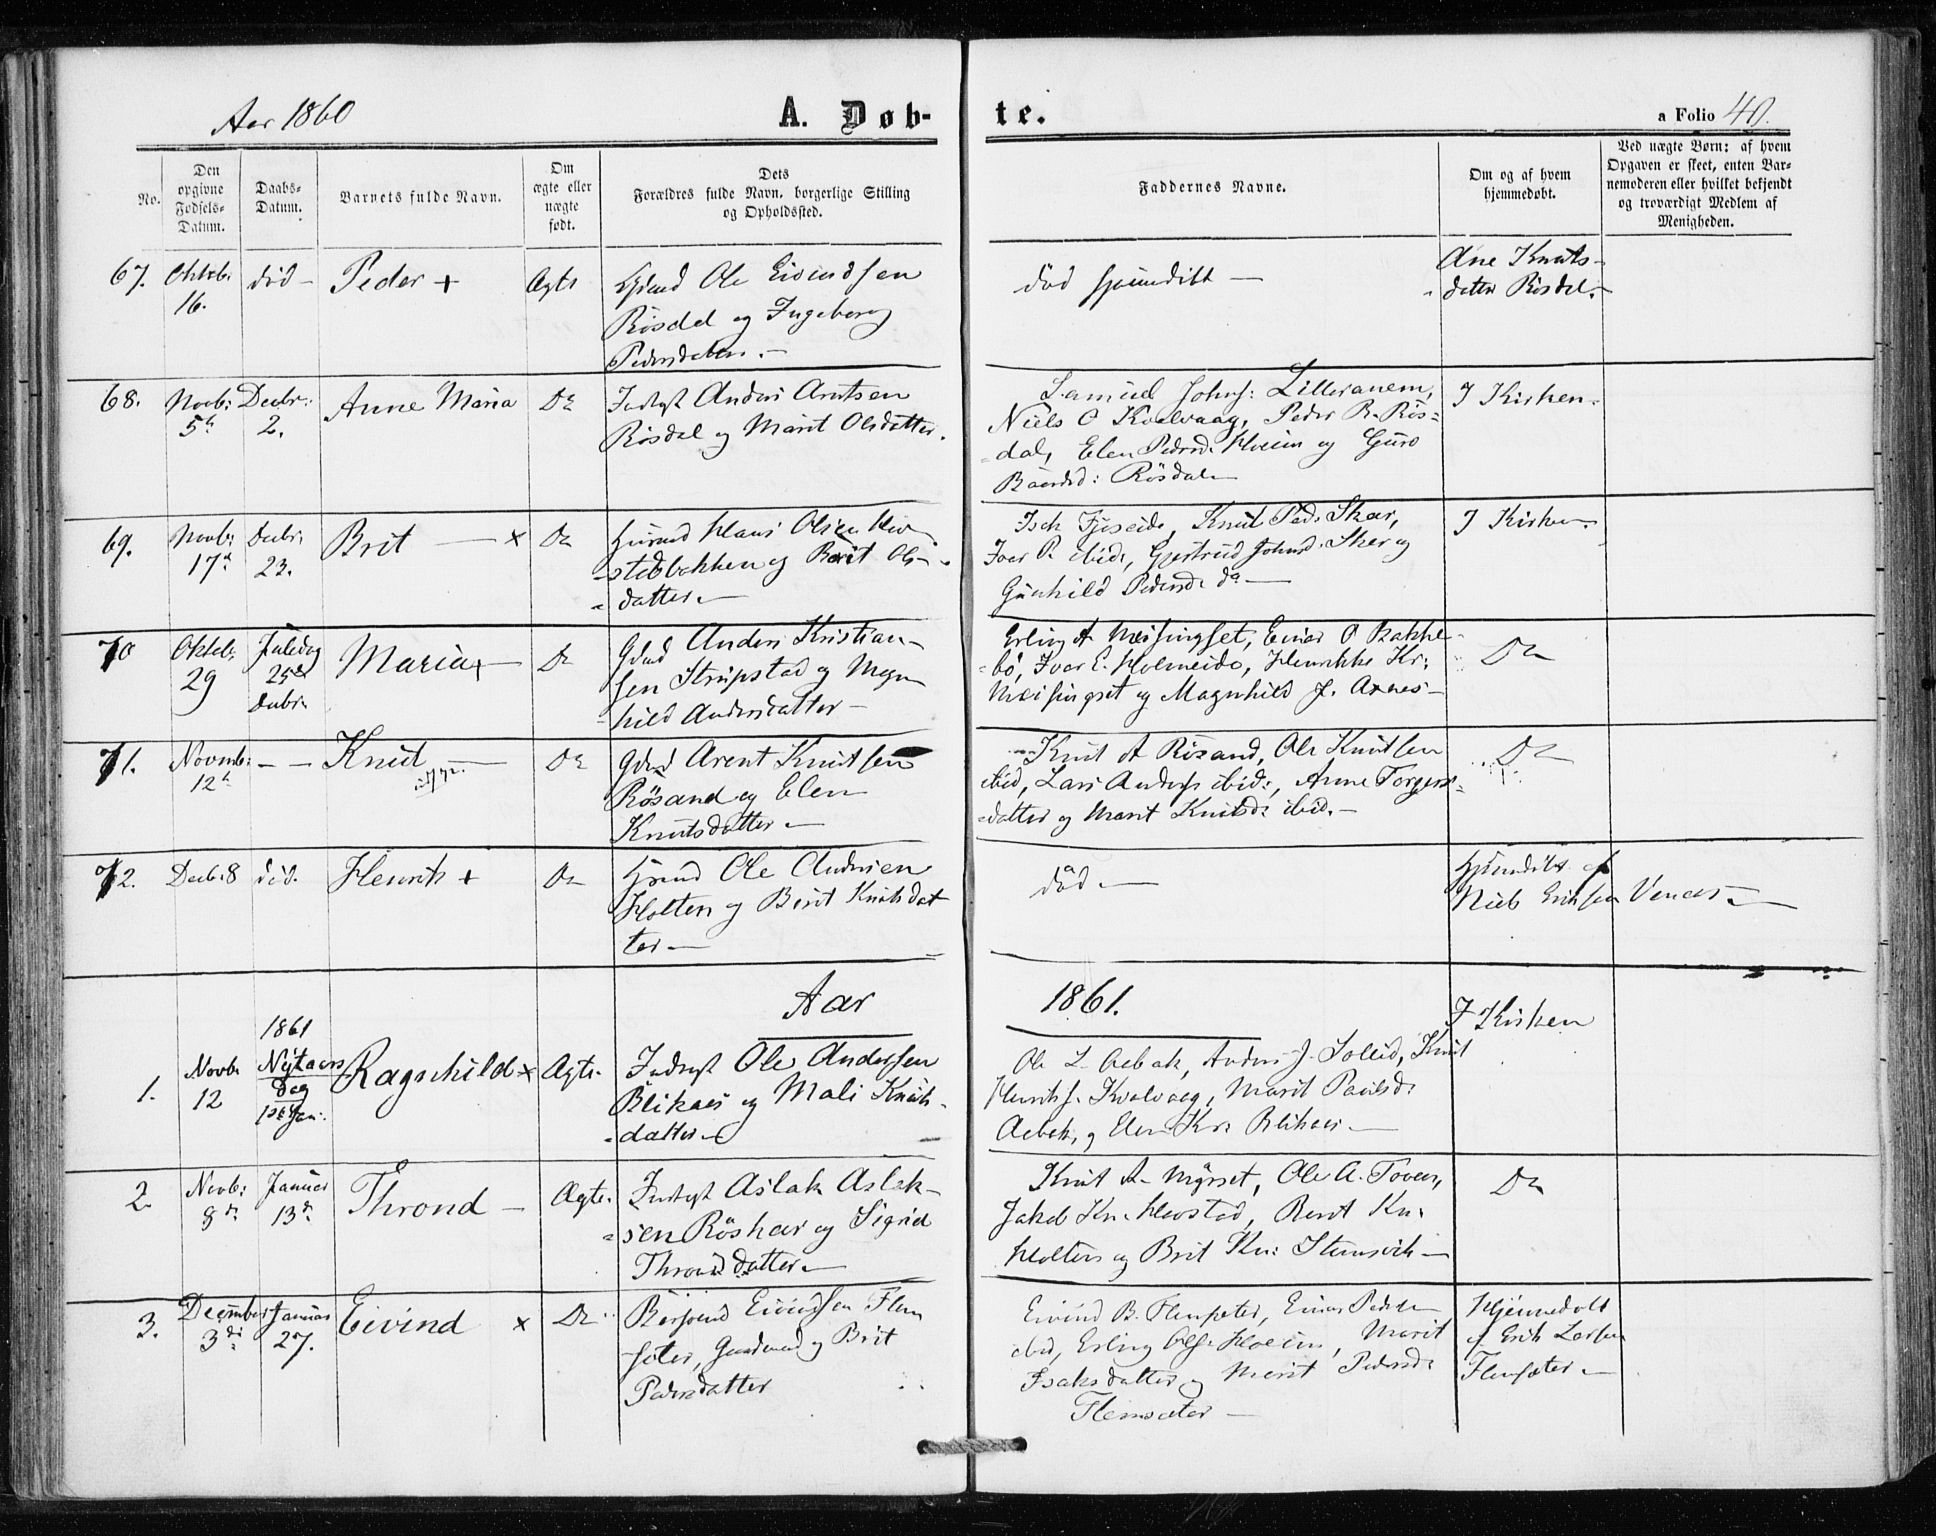 Aar 1860
A. Døb-
te.
a Folio 40.
No.
Den
opgivne
Fødsels-
Datum.
Daabs-
Datum.
Barnets fulde Navn.
Om
ægte eller
uægte
født.
Dets
Forældres fulde Navn, borgerlige Stilling
og Opholdssted.
Faddernes Navne.
Om og af hvem
hjemmedøbt.
Ved uægte Børn: af hvem
Opgaven er skeet, enten Bar-
nemoderen eller hvilket bekjendt
og troværdigt Medlem af
Menigheden.
67.
Oktbr.
16.
död -
Peder +
Ægte
Ole Eivindsen
Rösdal og Ingeborg
Pedersdatter. -
död hjemdöbt -
Ane Knuts-
datter Rösdal. -
68.
Novbr:
5t
Decbr:
2.
Anne Maria
Do
Indrgt Anders Arntsen
Rösdal og Marit Olsdatter.
Samuel Johns: Lilleranem,
Niels O Kvalvaag, Peder R. Rös-
dal, Elen Pedersd. Hoeim og Guro
Baardsd: Rösdal -
I Kirken -
69.
Novbr:
17d
Decbr.
23.
Brit - x
Do
Huusmd Hans Olsen
-stadbakken og Berit Ols-
datter. -
Isak Fjeseide, Knut Peds Skar,
Iver P. ibid:, Gjertrud Johnsd: Skar og
Gunhild Pedersd: do -
I Kirken
70
Oktob:
29
Juledag
25de
Decbr.
Maria + -
Do
Gdmd Anders Kristian-
sen Stripstad og Magn-
hild Andersdatter -
Erling A Meisingset, Einar O Bakke-
bö, Iver E. Holmeide, Henrikke Kr:
Meisingset og Magnhild J. Aarnes -
Do
71.
Novmb:
12t
- -
Knut -
Do
Gdmd Arent Knutsen
Rösand og Elen
Knutsdatter -
Knut A Rösand, Ole Knutsen
ibid, Lars Anders ibid:, Anne Torgers-
datter og Marit Knutsd: ibid. -
Do
72.
Decb: 8
död.
Henrik +
Do
Ole Andersen
Holten og Berit Knutsdat
ter -
död -
Hjemdöbt af
Niels Eriksen Venaas -
Aar
1861.
1.
Novbr
12
1861
Nytaars
Dag
1ste Jan:
Ragnhild x
Ægte
Indrgt Ole Andersen
Blikaas og Mali Knuts-
datter -
Ole L. Aebak, Anders J. Sollid, Knut
Henriks. Kvalvaag, Marit Paulsd:
Aebak, og Elen Kr: Blikaas -
I Kirken
2.
Novbr:
8de
Januar
13de
Thrond -
Ægte.
Indrgt Aslak Aslak-
sen Röskar og Sigrid
Thronddatter -
Knut A. Myrset, Ole A. Toven,
Jakob Kn. Hevstad, Berit Kn.
Holten og Brit Kn: Stensvik -
Do
3.
December
3die
Januar
27.
Eivind x
Do
Eivindsen Flem
sæter, Gaardmd og Brit
Pedersdatter
Eivind B. Flemsæter, Einar Pedersen
ibid, Erling Ols. Hoeim, Marit
Isaksdatter og Marit Pedersd:
Flemsæter -
Hjemmedöbt
af Erik Larsen
Flemsæter -